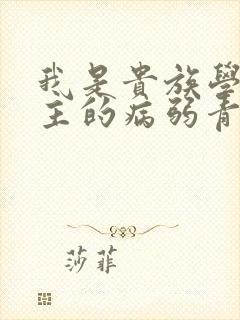 我是貴族學
主的病弱青
莎菲